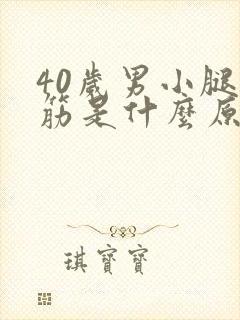 40歲男小腿
筋是什麼原
琪寶寶